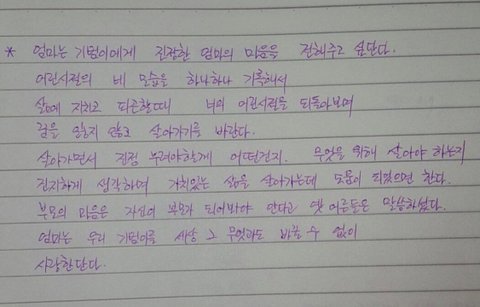 * 엄마는 기쁨이에게 진정한 엄마의 마음을 전해주고 싶단다.
어린시절의 네 모습을 하나하나 기록해서
삶에 지치고 피곤할때 너의 어린시절을 되돌아보며
꿈을 잃지 않고 살아가기를 바란다.
살아가면서 진정 누려야할게 어떤건지. 무엇을 위해 살아야 하는지
진지하게 생각하며 가치있는 삶을 살아가는데 도움이 되었으면 한다.
부모의 마음은 자신이 부모가 되어봐야 안다고 옛 어른들은 말씀하셨다.
엄마는 우리 기쁨이를 세상 그 무엇과도 바꿀 수 없이
사랑한단다.